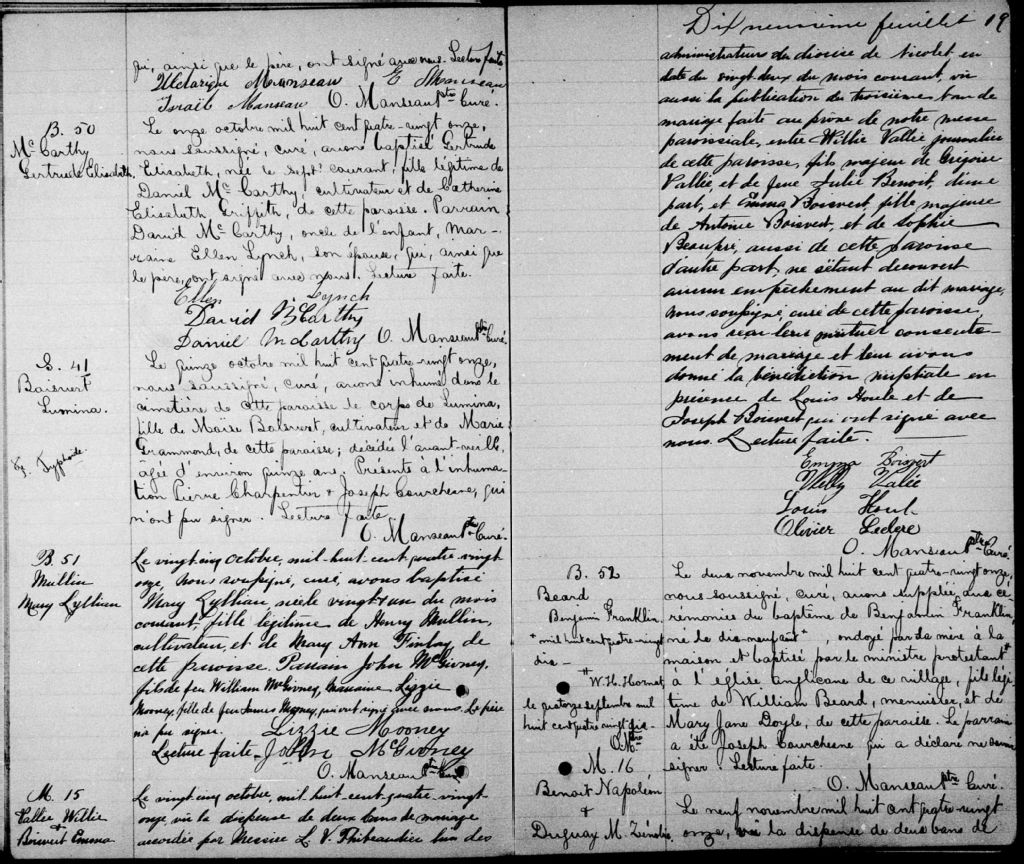 qui, ainsi que le père, ont signé avec nous. Lecture faite
Uldarique Manseau E Manseau
Israël Manseau O. Manseau ptre Curé.
B. 50
Mc Carthy
Gertrude Elisabeth
Le onze octobre mil huit cent quatre-vingt onze,
nous soussigné, curé, avons baptisé Gertrude
Elisabeth, née le sept courant, fille légitime de
Daniel Mc Carthy, cultivateur et de Catherine
Elisabeth Griffith, de cette paroisse. Parrain
David Mc Carthy, oncle de l'enfant, mar-
raine Ellen Lynch, son épouse, qui, ainsi que
le père, ont signé avec nous. Lecture faite.
Ellen Lynch
David McCarthy
Daniel McCarthy O. Manseau ptre Curé.
S. 41
Boisvert
Lumina.
Typhoïde
Le quinze octobre mil huit cent quatre-vingt onze,
nous soussigné, curé, avons inhumé dans le
cimetière de cette paroisse le corps de Lumina,
fille de Moïse Boisvert, cultivateur et de Marie
Grammond, de cette paroisse; décédée l'avant-veille,
âgée d'environ quinze ans. Présents à l'inhuma-
tion Pierre Charpentier & Joseph Courchesne, qui
n'ont pu signer. Lecture faite.
O. Manseau ptre Curé.
B. 51
Mullin
Mary Lyllian
Le vingt-cinq octobre, mil-huit-cent-quatre-vingt
onze, nous soussigné, curé, avons baptisé
Mary Lyllian, née le vingt-un du mois
courant, fille légitime de Henry Mullin,
cultivateur, et de Mary Ann Finlay de
cette paroisse. Parrain John McGivney,
fils de feu William McGivney, marraine Lizzie
Mooney, fille de feu James Mooney, qui ont signé avec nous. Le père
n'a pu signer. Lizzie Mooney
Lecture faite John McGivney
O. Manseau ptre Curé
M. 15
Vallée Willie
&
Boisvert Emma
Le vingt-cinq octobre, mil-huit-cent-quatre-vingt-
onze, vu la dispense de deux bans de mariage
accordée par Messire L. V. Thibaudier l'un des
Dix neuvième feuillet 19
administrateurs du diocèse de Nicolet en
date du vingt deux du mois courant, vu
aussi la publication du troisième ban de
mariage faite au prône de notre messe
paroissiale, entre Willie Vallée journalier
de cette paroisse, fils majeur de Grégoire
Vallée, et de feue Julie Benoit, d'une
part, et Emma Boisvert, fille majeure
de Antoine Boisvert, et de Sophie
Beaupré, aussi de cette paroisse
d'autre part, ne s'étant découvert
aucun empêchement au dit mariage,
nous soussigné, curé de cette paroisse,
avons reçu leur mutuel consente-
ment de mariage et leur avons
donné la bénédiction nuptiale en
présence de Louis Houle et de
Joseph Boisvert qui ont signé avec
nous. Lecture faite.
Emma Boisvert
Willy Valée
Louis Houl
Olivier Leclerc
O. Manseau ptre Curé
B. 52
Beard
Benjamin Franklin,
+ mil huit cent quatre-vingt
dix —
# W. H. Hornet
le quatorze septembre mil
huit cent quatre vingt dix
O. M. ptre
Le deux novembre mil huit cent quatre-vingt onze,
nous soussigné, curé, avons suppléé aux cé-
rémonies du baptême de Benjamin Franklin,
né le dix-neuf août +, ondoyé par sa mère à la
maison et baptisé par le ministre protestant #
à l'église anglicane de ce village, fils légi-
time de William Beard, menuisier, et de
Mary Jane Doyle, de cette paroisse. Le parrain
a été Joseph Courchesne qui a déclaré ne savoir
signer. Lecture faite.
O. Manseau ptre Curé.
M. 16
Benoit Napoléon
&
Duguay M. Zénobie
Le neuf novembre mil huit cent quatre-vingt
onze, vu la dispense de deux bans de